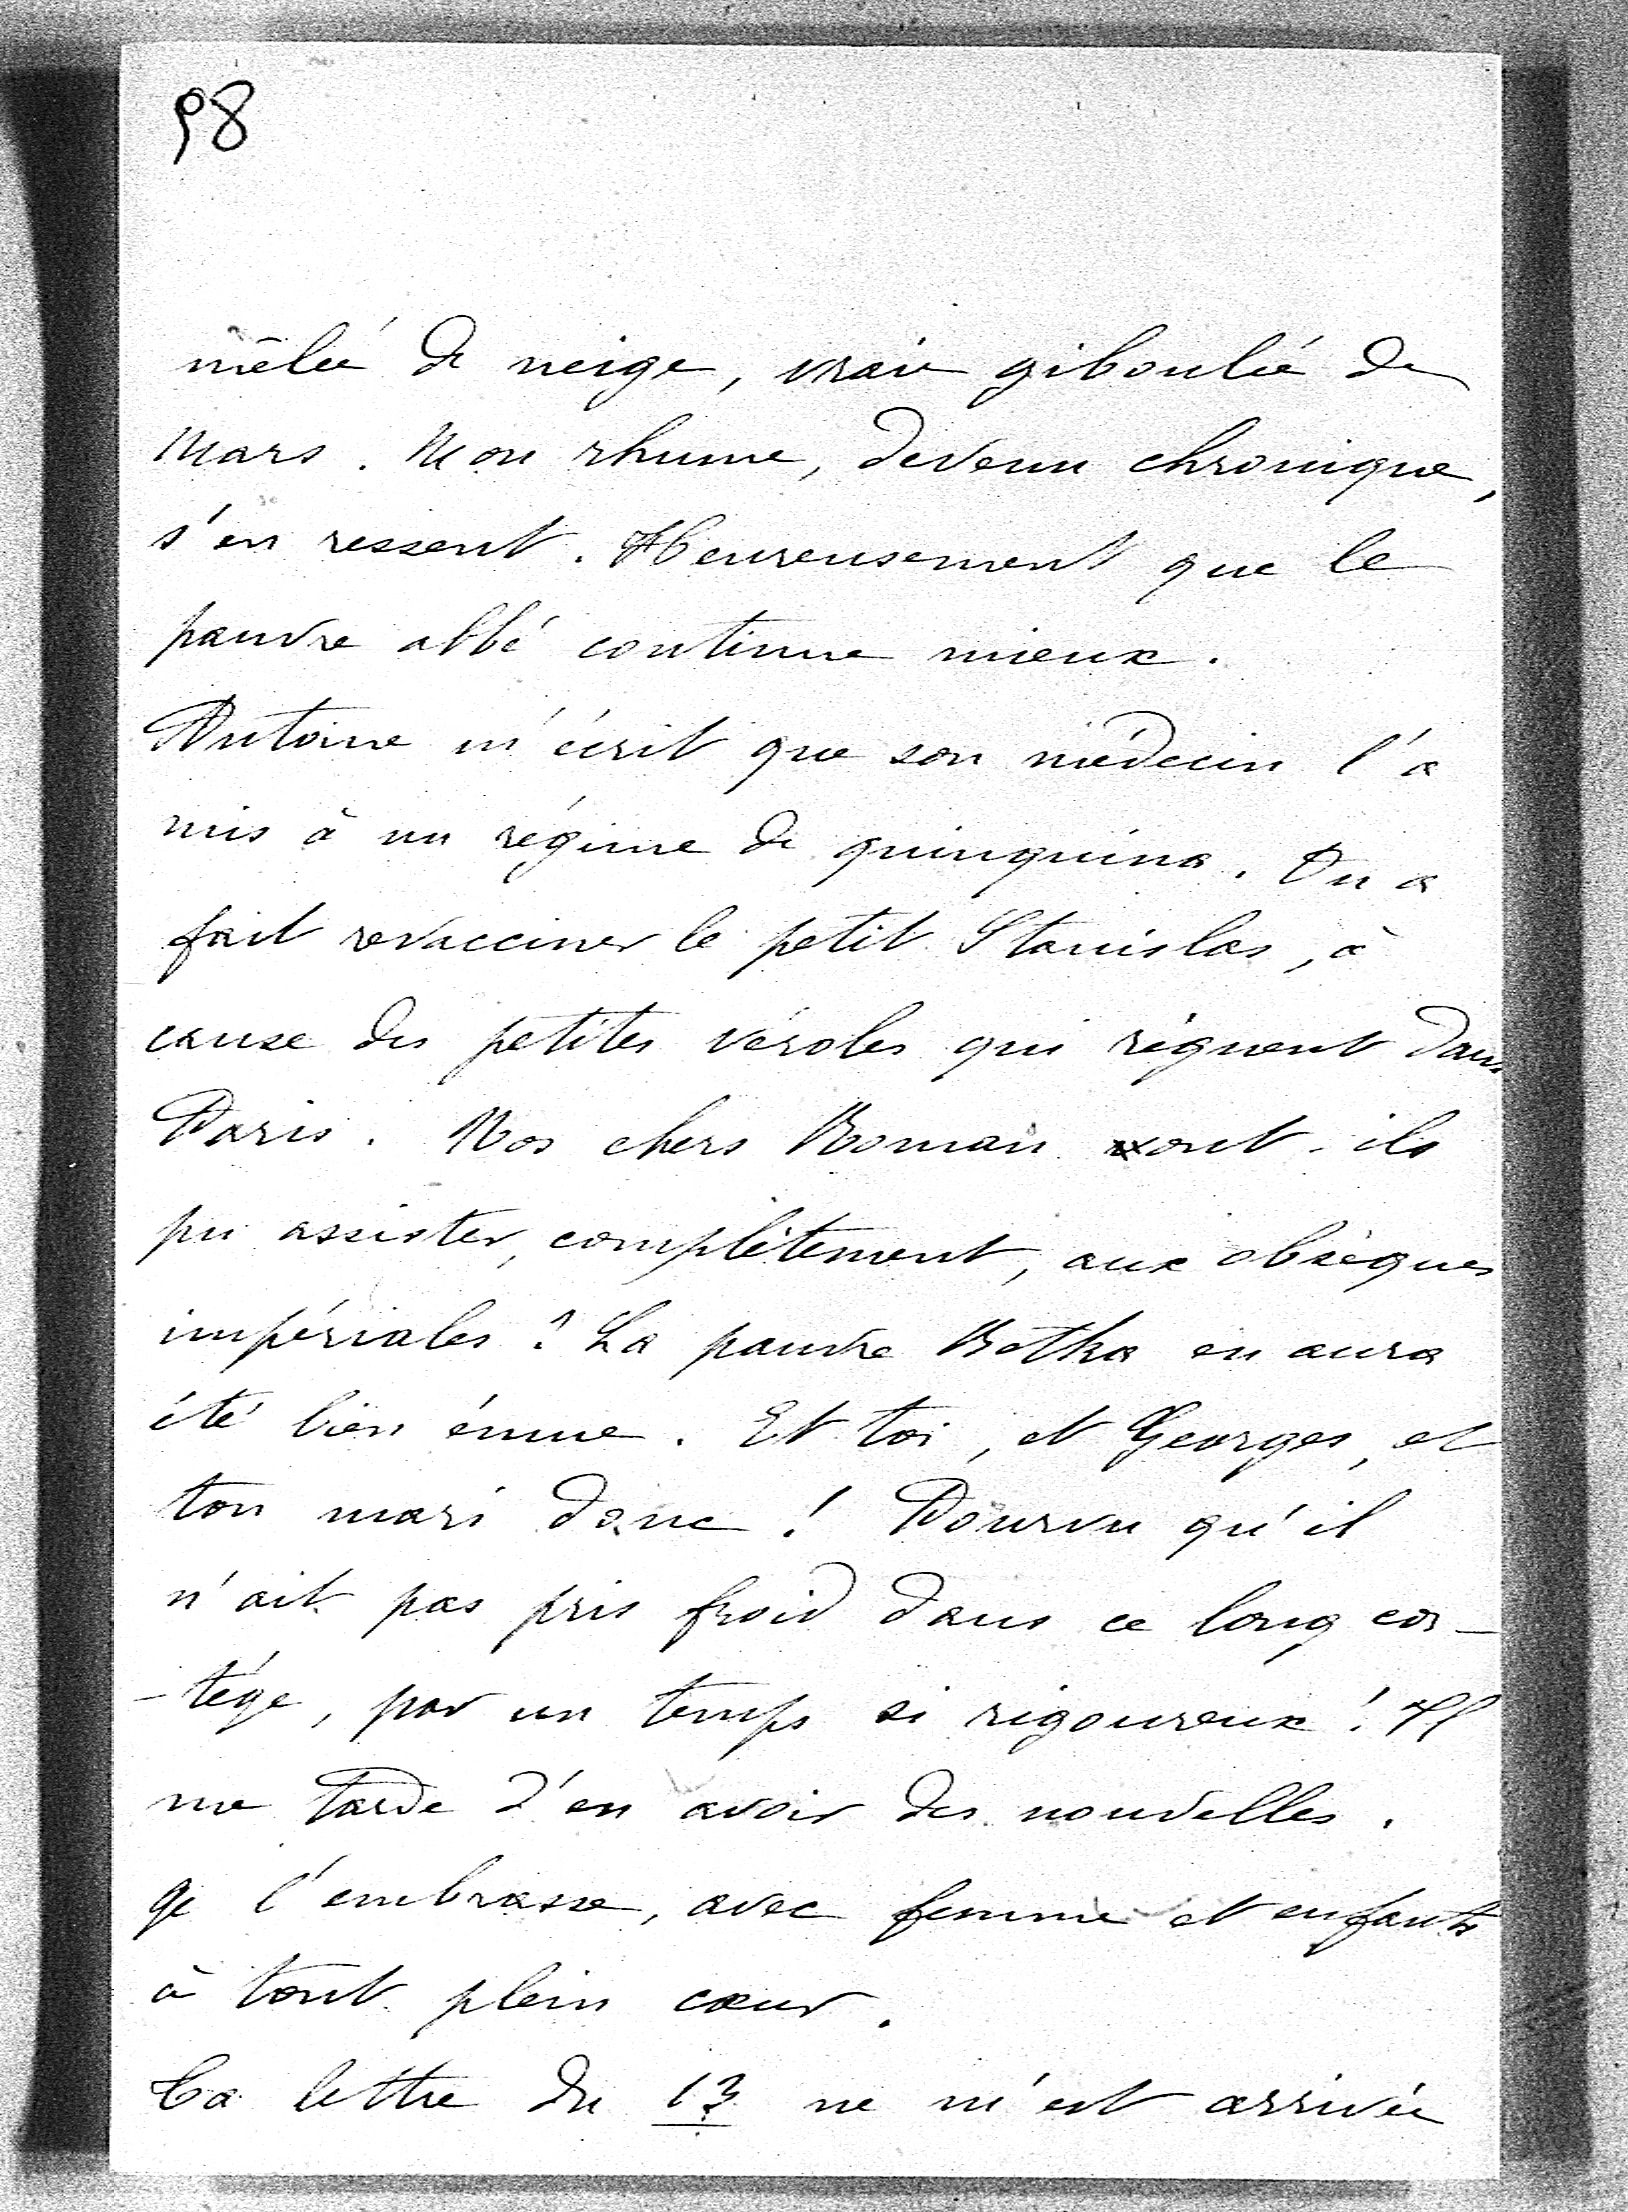 98
mêlée de neige, vraie giboulée de
Mars. Mon rhume, devenu chronique,
s'en ressent. Heureusement que le
pauvre abbé continue mieux.
Antoine m'écrit que son médecin l'a
mis à un régime de quinquina. On a
fait revacciner le petit Stanislas, à
cause des petites véroles qui règnent dans
Paris. Nos chers Roman ont-ils
pu assister, complètement, aux obsèques
impériales? La pauvre Betka en aura
été bien émue. Et toi, et Georges, et
ton mari donc! Pourvu qu'il
n'ait pas pris froid dans ce long cor-
-tége, par un temps si rigoureux! Il
me tarde d'en avoir des nouvelles.
Je l'embrasse, avec femme et enfants
à tout plein cœur.
Ta lettre du 13 ne m'est arrivée